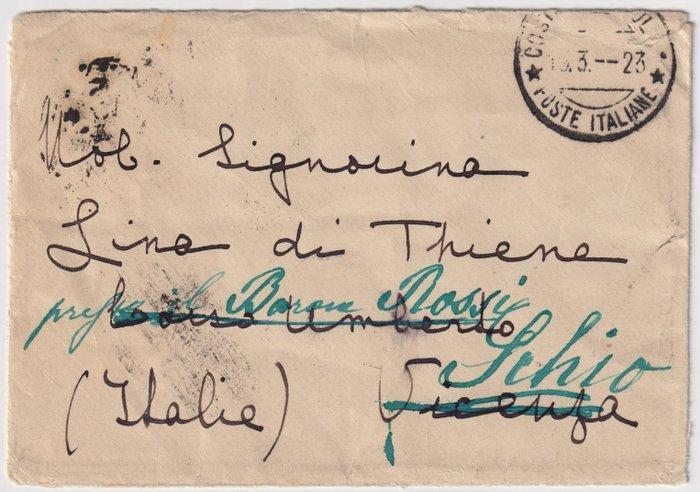 POSTE ITALIANE
3.--23
Nob. Signorina
Lina di Thiene
presso il Baron Rossi
Corso Umberto
Schio
(Italie) Vicenza